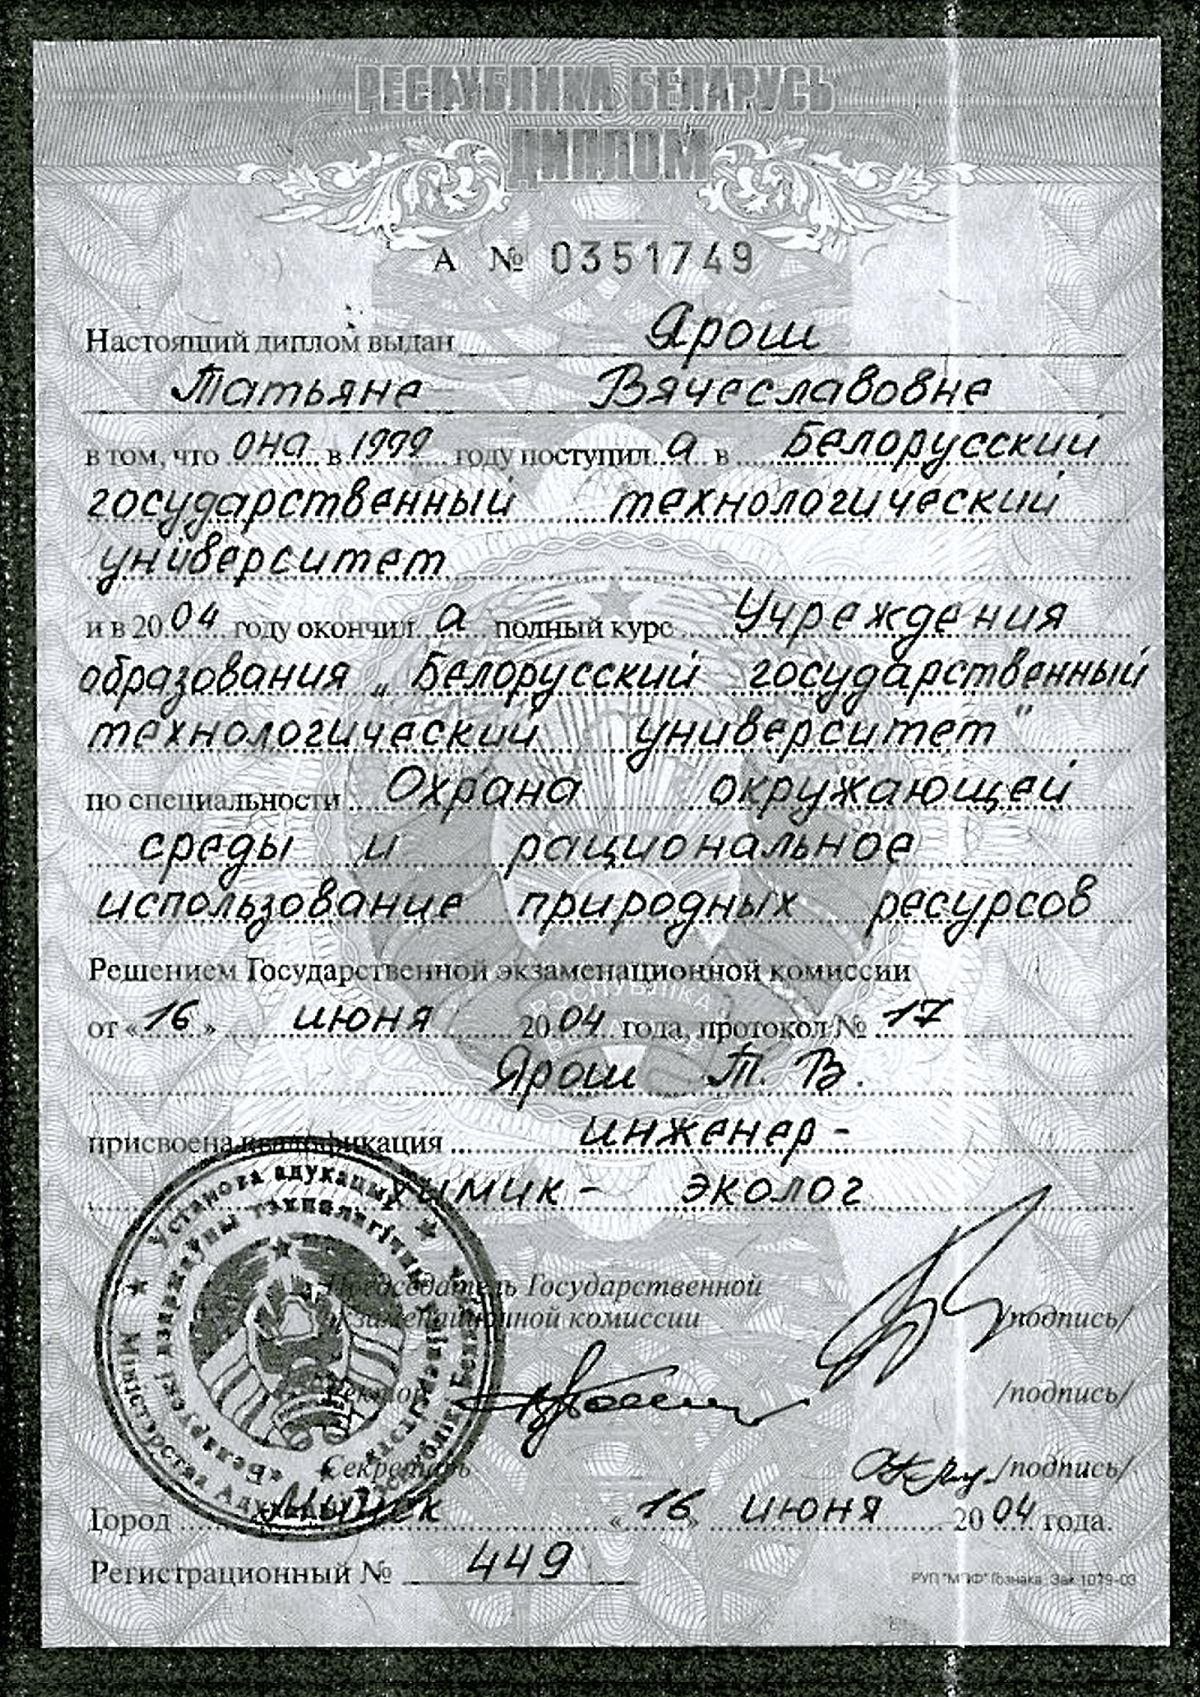 РЕСПУБЛИКА БЕЛАРУСЬ
ДИПЛОМ
А № 0351749
Настоящий диплом выдан Ярош
Татьяне Вячеславовне
в том, что она в 1999 году поступил а в Белорусский
государственный технологический
университет
и в 2004 году окончил а полный курс Учреждения
образования „Белорусский государственный
технологический университет"
по специальности Охрана окружающей
среды и рациональное
использование природных ресурсов
Решением Государственной экзаменационной комиссии
РЭСПУБЛІКА
от «16» июня 2004 года, протокол № 17
Ярош Т. В.
присвоена квалификация инженер-
химик- эколог
Установа адукацыі
Міністэрства Адукацыі Рэспублікі Беларусь
«Беларускі дзяржаўны тэхналагічны універсітэт»
Председатель Государственной
экзаменационной комиссии /подпись/
Ректор /подпись/
Секретарь /подпись/
Город Минск «16» июня 2004 года.
Регистрационный № 449
РУП "МПФ" Гознака. Зак. 1079-03